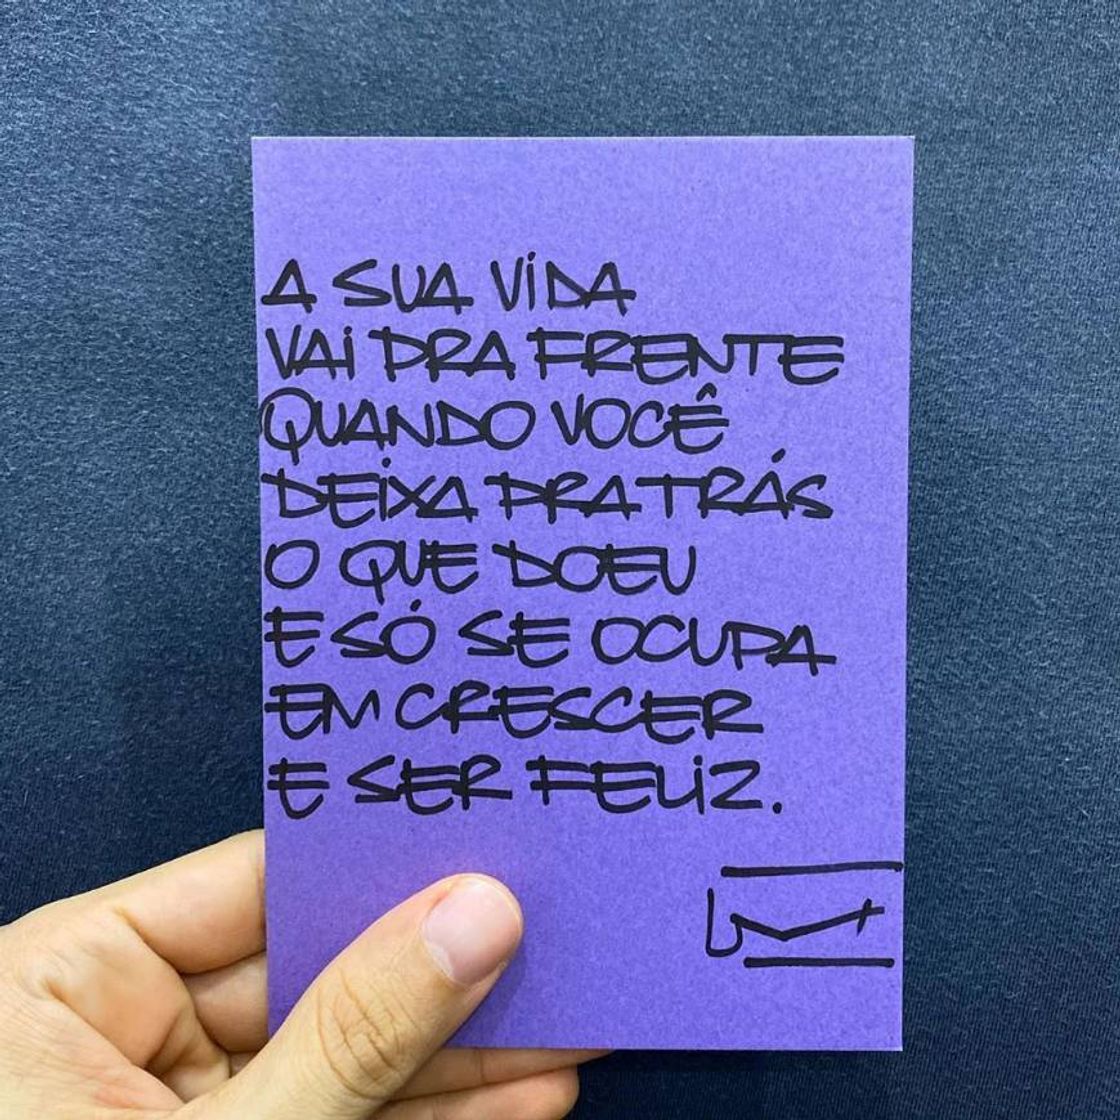 A SUA VIDA
VAI PRA FRENTE
QUANDO VOCÊ
DEIXA PRA TRÁS
O QUE DOEU
E SÓ SE OCUPA
EM CRESCER
E SER FELIZ.